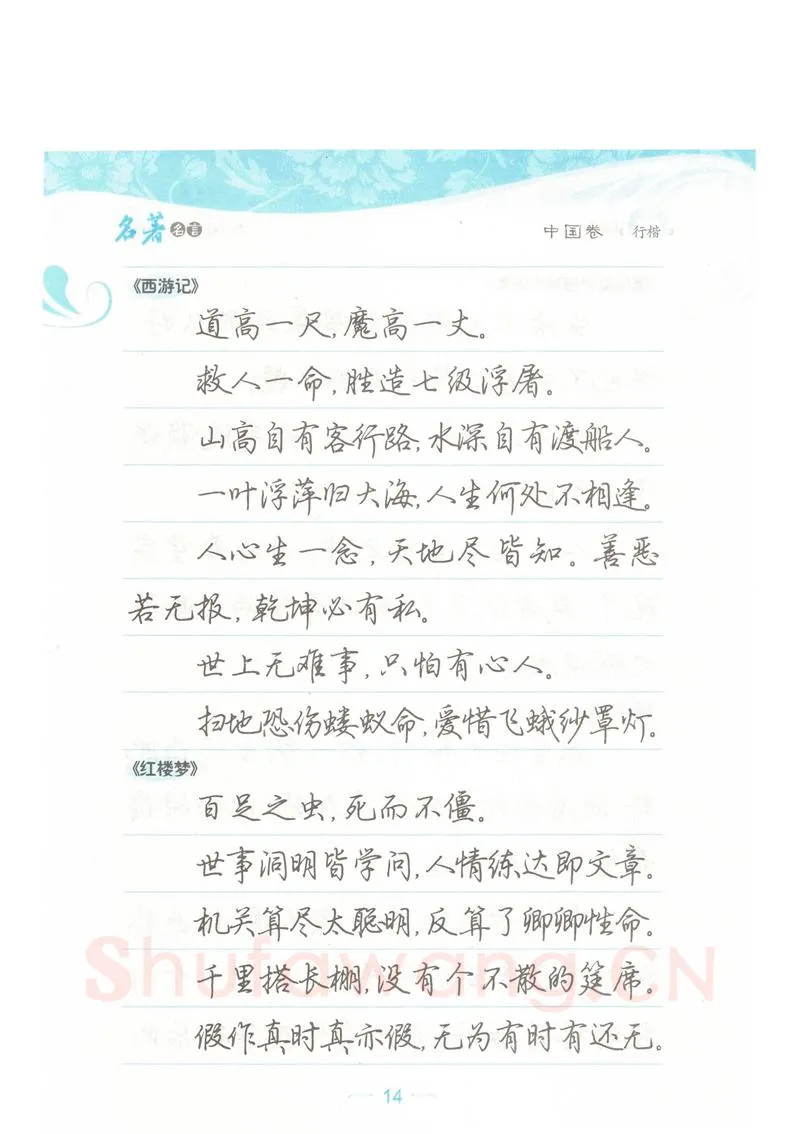 名著名言
中国卷 行楷
《西游记》
道高一尺，魔高一丈。
救人一命，胜造七级浮屠。
山高自有客行路，水深自有渡船人。
一叶浮萍归大海，人生何处不相逢。
人心生一念，天地尽皆知。善恶
若无报，乾坤必有私。
世上无难事，只怕有心人。
扫地恐伤蝼蚁命，爱惜飞蛾纱罩灯。
《红楼梦》
百足之虫，死而不僵。
世事洞明皆学问，人情练达即文章。
机关算尽太聪明，反算了卿卿性命。
千里搭长棚，没有个不散的筵席。
假作真时真亦假，无为有时有还无。
Shufawang.CN
14